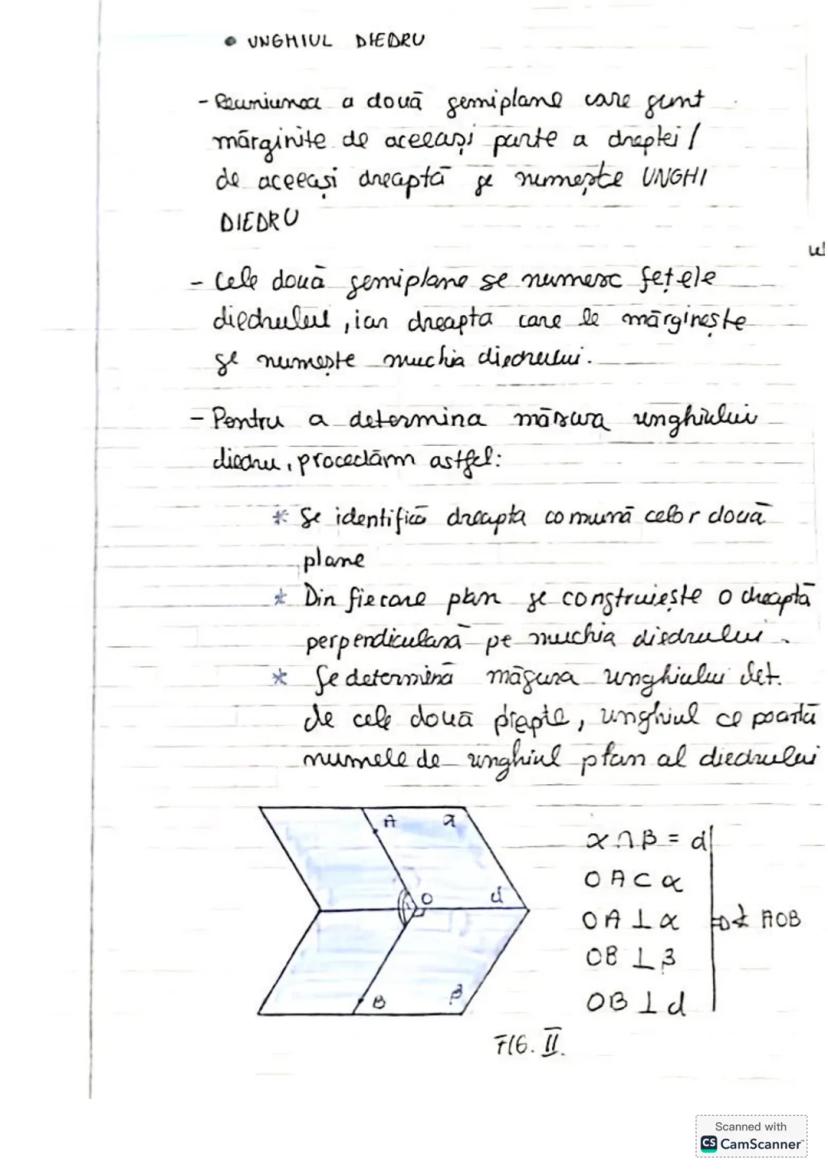 • UNGHIUL DIEDRU
- Reuniunea a două semiplane care sunt
mărginite de aceeași parte a dreptei /
de aceeași dreaptă se numește UNGHI
DIEDRU
- Cele două semiplane se numesc fețele
diedrului, iar dreapta care le mărginește
se numește muchia diedrului.
- Pentru a determina măsura unghiului
diedru, procedăm astfel:
* Se identifică dreapta comună celor două
plane
* Din fiecare plan se construiește o dreaptă
perpendiculară pe muchia diedrului.
* Se determină măsura unghiului det.
de cele două drepte, unghiul ce poartă
numele de unghiul plan al diedrului
A α
O d
B β
α ∩ β = d
OA ⊂ α
OA ⊥ α
OB ⊥ β
OB ⊥ d
⇒ ∢ AOB
FIG. II.
Scanned with
CS CamScanner